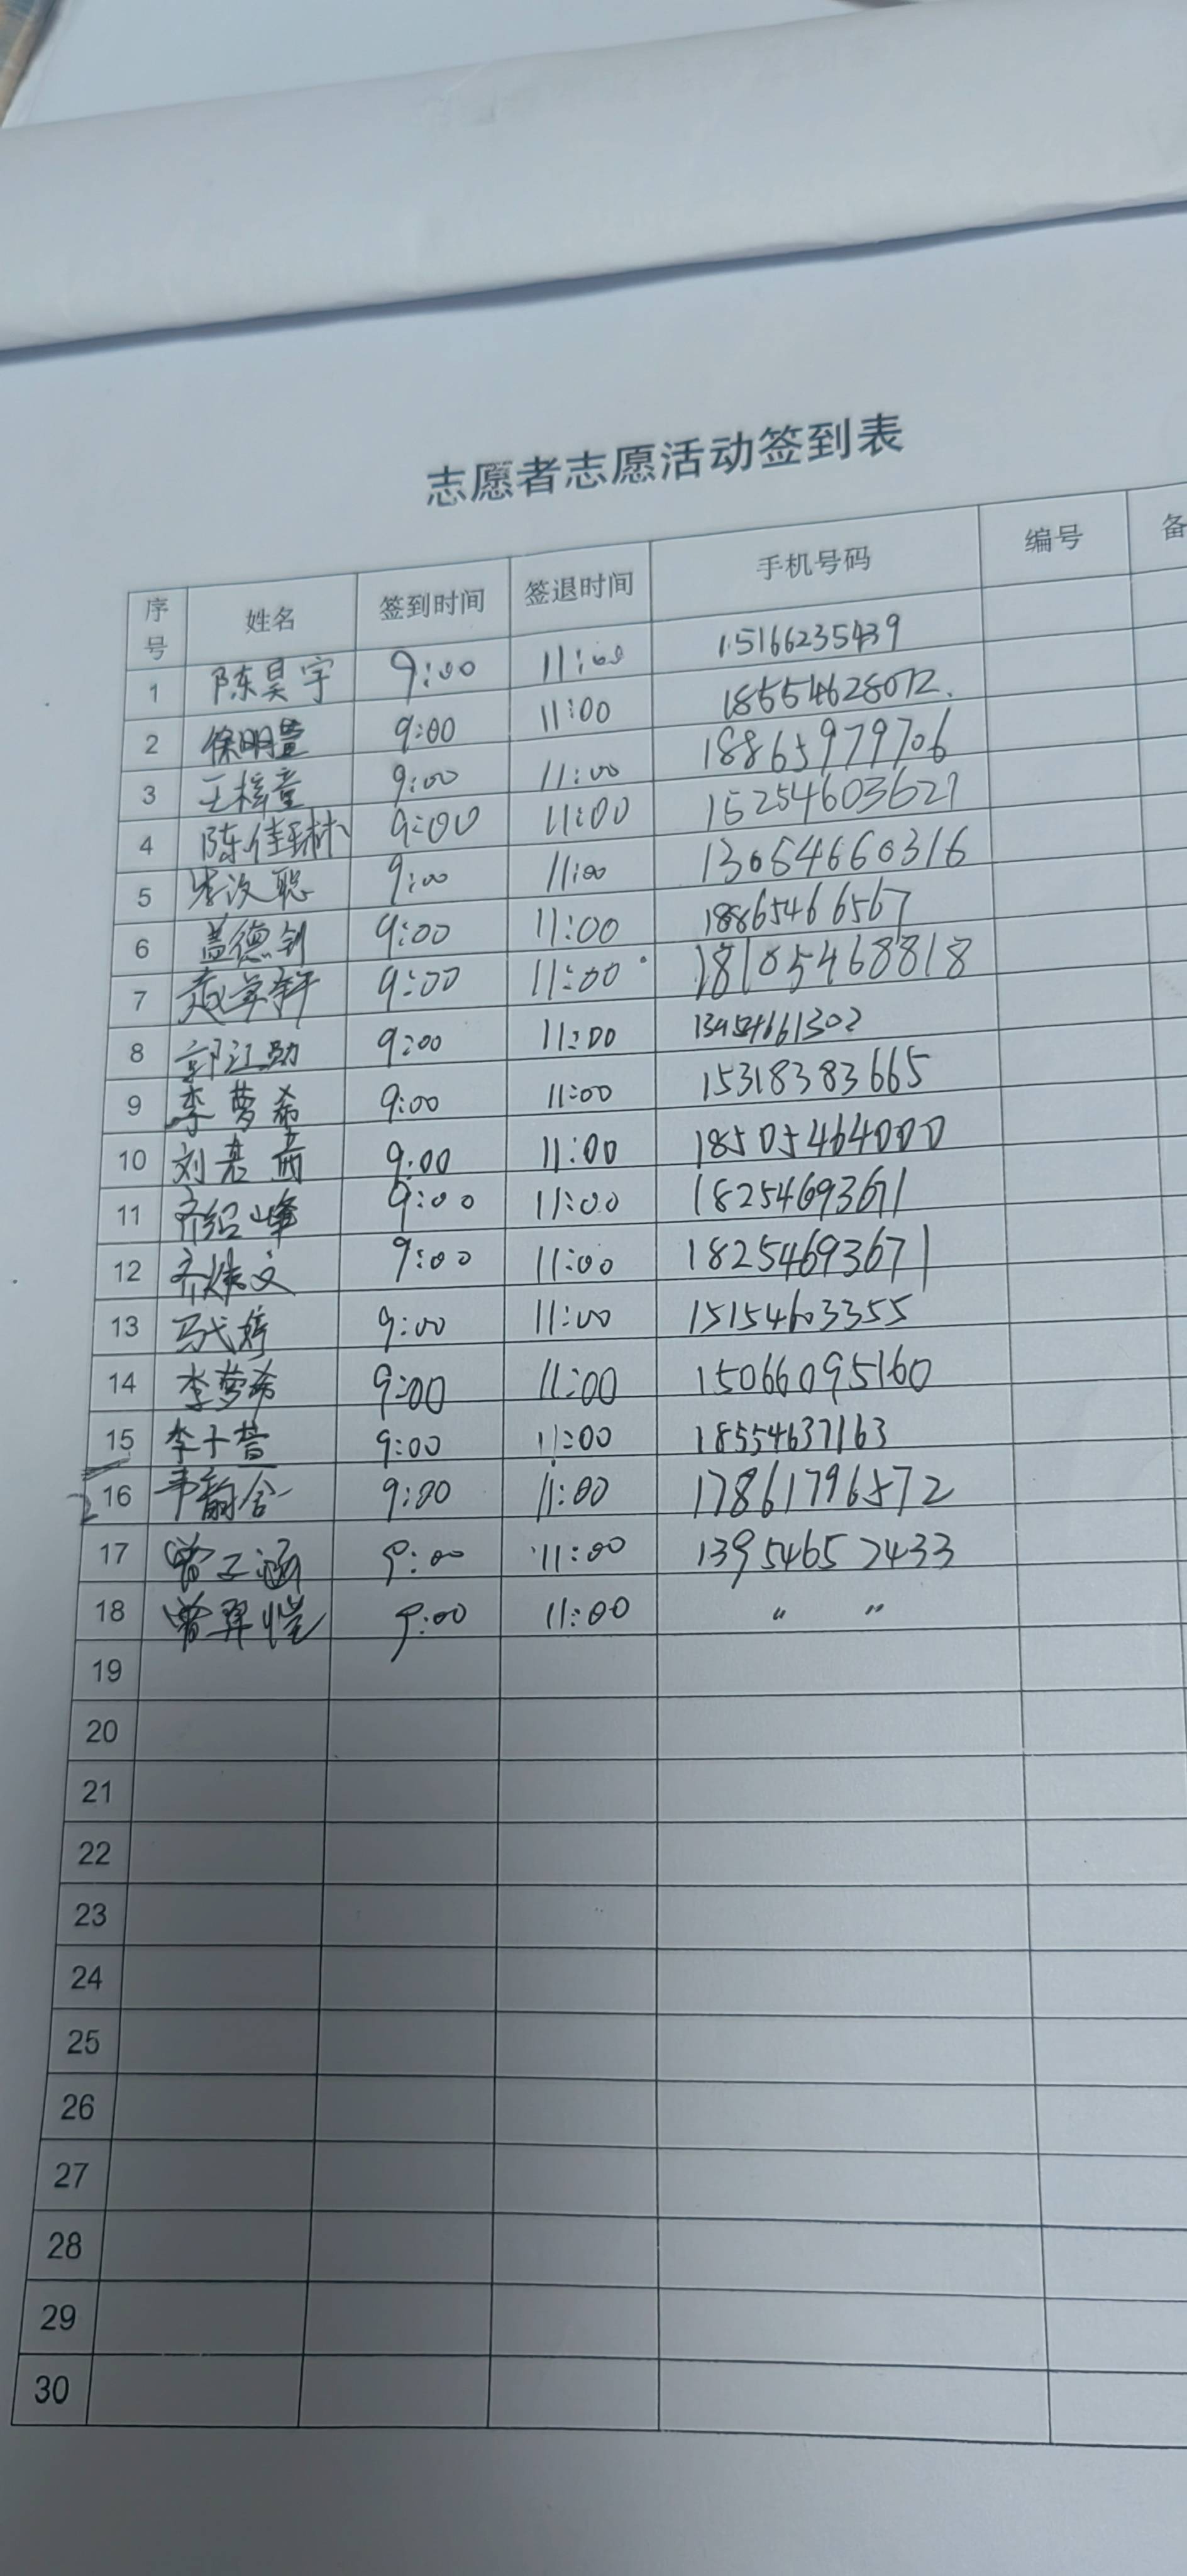 志愿者志愿活动签到表
序号 姓名 签到时间 签退时间 手机号码 编号 备
1 陈昊宇 9:00 11:00 15166235439
2 徐明 9:00 11:00 18554628072.
3 王梓童 9:00 11:00 18865979706
4 陈佳琳 9:00 11:00 15254603627
5 聪 9:00 11:00 13054660316
6 盖德剑 9:00 11:00 18865466567
7 9:00 11:00 18105468818
8 郭江勋 9:00 11:00 13954661302
9 李梦希 9:00 11:00 15318383665
10 刘 茜 9:00 11:00 18505464000
11 齐绍峰 9:00 11:00 18254693671
12 齐 文 9:00 11:00 18254693671
13 马 婷 9:00 11:00 15154603355
14 李梦希 9:00 11:00 15066095160
15 李 9:00 11:00 18554637163
16 韦韵含 9:00 11:00 17861796572
17 曾子涵 9:00 11:00 13954652433
18 曾羿恺 9:00 11:00 " "
19
20
21
22
23
24
25
26
27
28
29
30